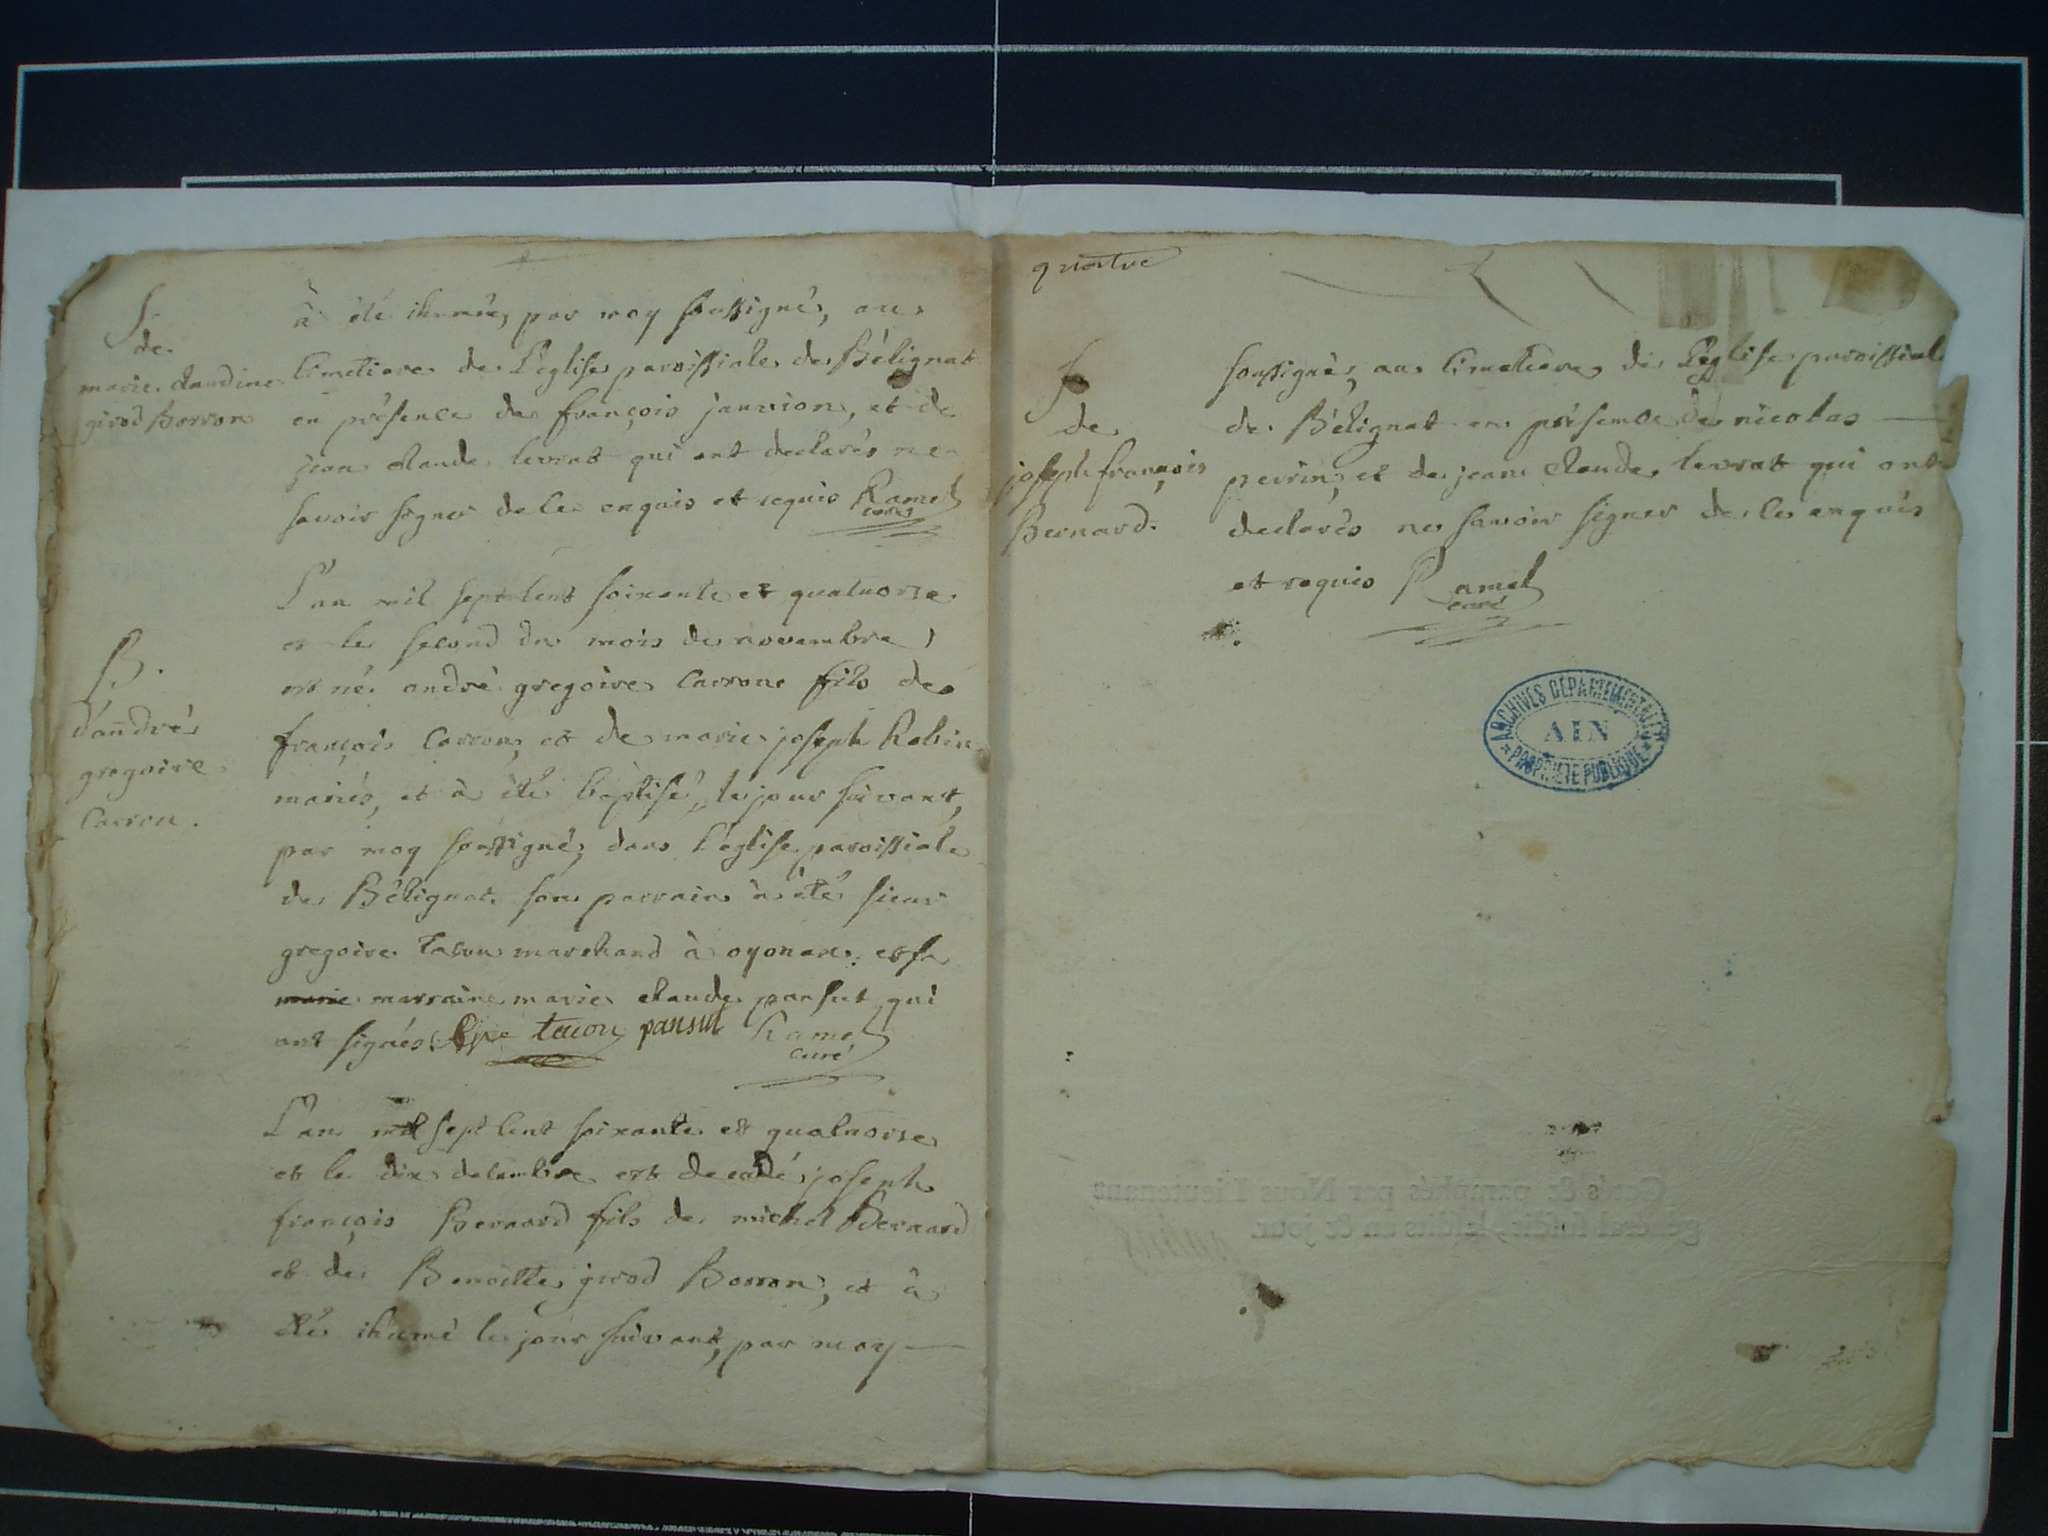 S
de
marie claudine
girod Borron
à été ihumée, par moy soussigné, au
cimetiere de L'eglise paroissiale de Bélignat
en présence de françois janvion, et de
jean claude levrat qui ont declarés ne
savoir signer de ce enquis et requis Ramel
curé
B.
d'andré
gregoire
Carron.
L'an mil sept cent soixante et quatuorse
et le second du mois de novembre,
est né andré gregoire Carron fils de
françois Carron, et de marie joseph Robin
mariés, et à été baptisé, le jour suivant,
par moy soussigné, dans l'eglise paroissiale
de Bélignat. son parrain à été sieur
gregoire tacon marchand à oyonax. et sa
marie marraine marie claude pansut qui
ont signés. tacon pansut Ramel
curé
L'an mil sept cent soixante et quatuorse
et le dix decembre est decédé joseph
françois Bernard fils de michel Bernard
et de Benoitte girod Borron, et à
été ihumé le jour suivant, par moy
quatre
S
de
joseph françois
Bernard.
soussigné, au cimetiere de L'eglise paroissial
de Bélignat en présence de nicolas
perrin, et de jean claude levrat qui ont
declarés ne savoir signer de ce enquis
et requis Ramel
curé
ARCHIVES DÉPARTEMENTALES
AIN
PROPRIÉTÉ PUBLIQUE
Cotés & paraphés par Nous Lieutenant
général susdit, lesdits an & jour.